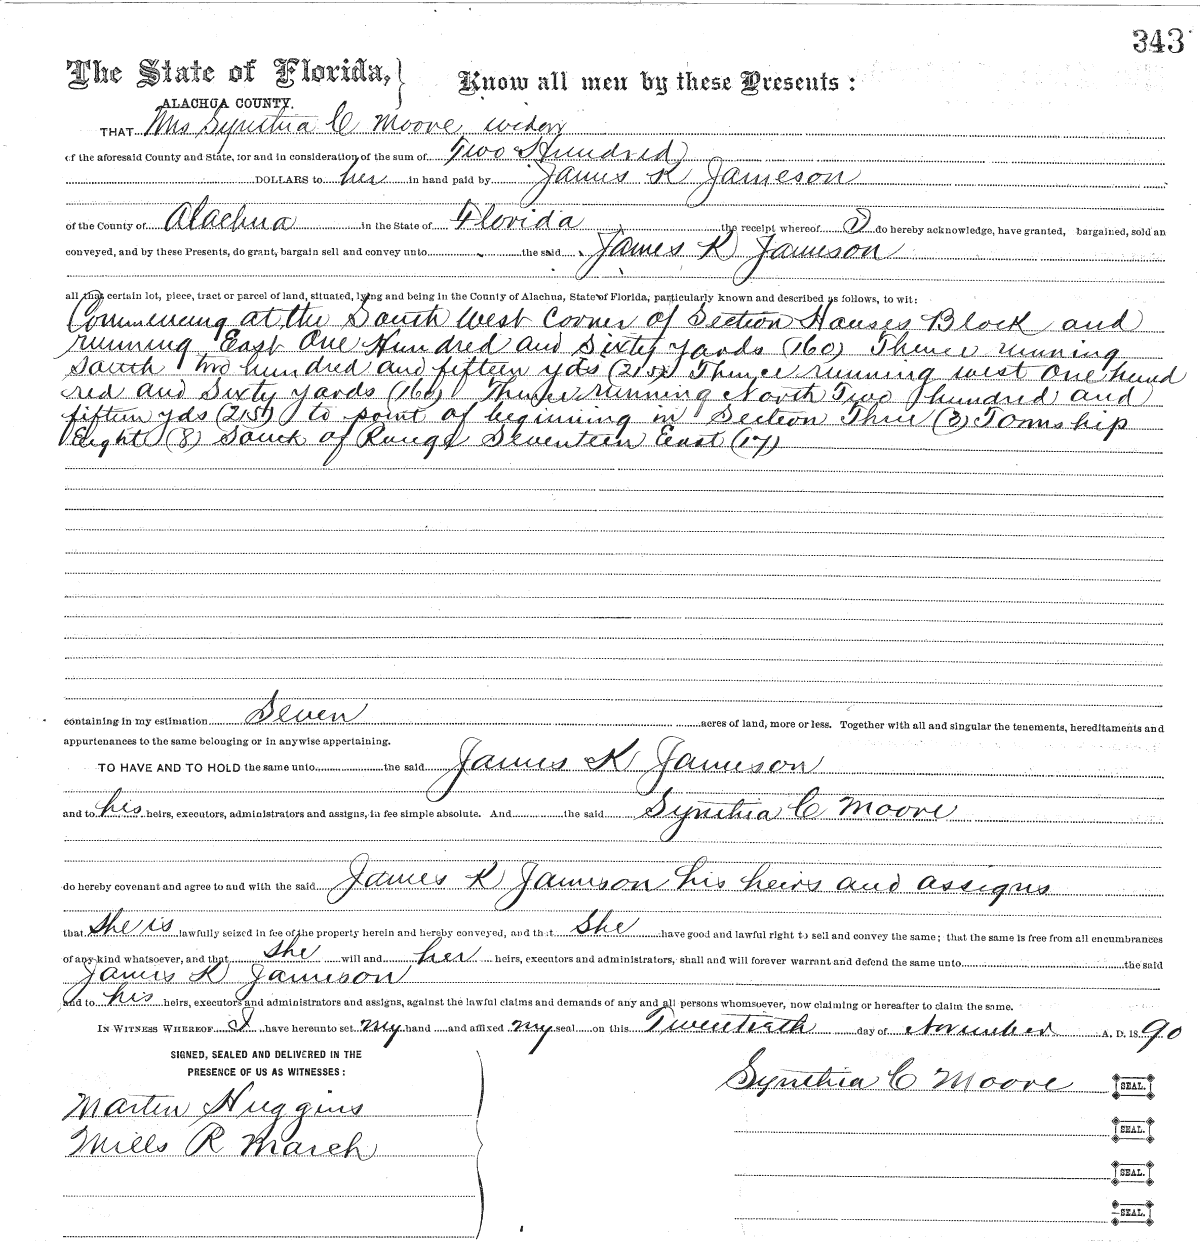 343
The State of Florida, } Know all men by these Presents :
ALACHUA COUNTY.
THAT Mrs Synthia C Moore widow
of the aforesaid County and State, for and in consideration of the sum of Two Hundred
DOLLARS to her in hand paid by James K Jameson
of the County of Alachua in the State of Florida the receipt whereof I do hereby acknowledge, have granted, bargained, sold an
conveyed, and by these Presents, do grant, bargain sell and convey unto the said James K Jameson
all that certain lot, piece, tract or parcel of land, situated, lying and being in the County of Alachua, State of Florida, particularly known and described as follows, to wit:
Commencing at the South West Corner of Section Houses Block and
running East One Hundred and Sixty yards (160) Thence running
South two hundred and fifteen yds (215) Thence running west One hund
red and Sixty yards (160) Thence running North Two hundred and
fifteen yds (215) to point of beginning in Section Three (3) Township
Eight (8) South of Range Seventeen East (17)
containing in my estimation Seven acres of land, more or less. Together with all and singular the tenements, hereditaments and
appurtenances to the same belonging or in anywise appertaining.
TO HAVE AND TO HOLD the same unto the said James K Jameson
and to his heirs, executors, administrators and assigns, in fee simple absolute. And the said Synthia C Moore
do hereby covenant and agree to and with the said James K Jameson his heirs and assigns
that she is lawfully seized in fee of the property herein and hereby conveyed, and that She have good and lawful right to sell and convey the same; that the same is free from all encumbrances
of any kind whatsoever, and that she will and her heirs, executors and administrators, shall and will forever warrant and defend the same unto the said
James K Jameson
and to his heirs, executors and administrators and assigns, against the lawful claims and demands of any and all persons whomsoever, now claiming or hereafter to claim the same.
IN WITNESS WHEREOF I have hereunto set my hand and affixed my seal on this Twentieth day of November A. D. 1890
SIGNED, SEALED AND DELIVERED IN THE
PRESENCE OF US AS WITNESSES :
Synthia C Moore SEAL.
Martin Huggins
SEAL.
Mills R March
SEAL.
SEAL.